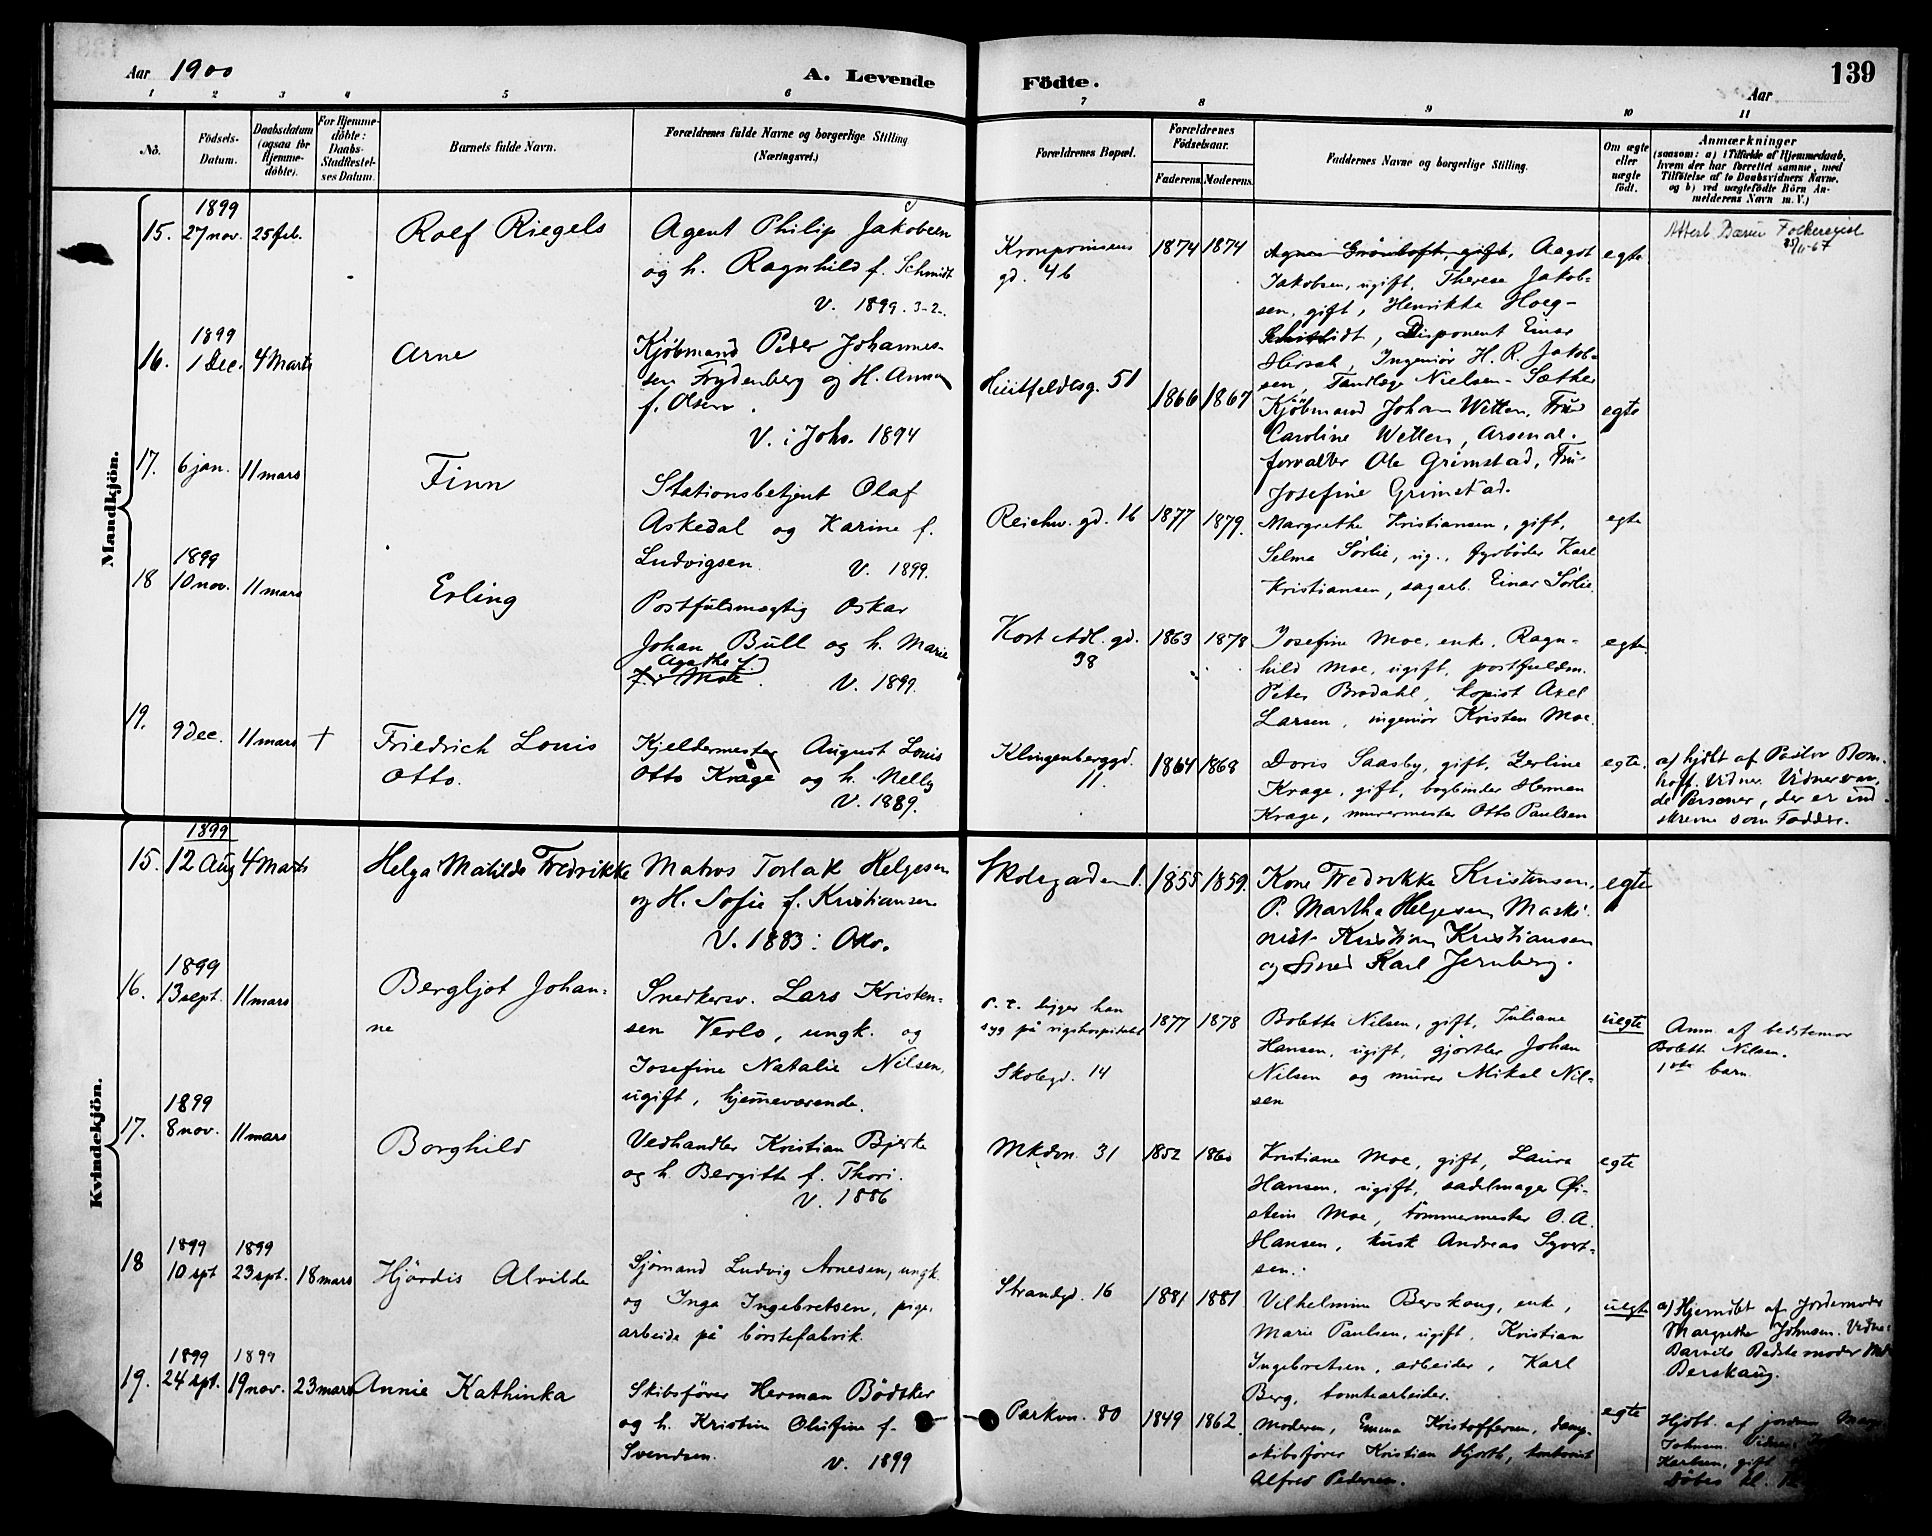 Aar 1900
A. Levende
Födte.
139
Aar
1 2 3 4 5 6 7 8 9 10 11
No.
Födsels-
Datum.
Daabsdatum
(ogsaa for
Hjemme-
döbte).
For Hjemme-
döbte:
Daabs-
Stadfæstel-
ses Datum.
Barnets fulde Navn.
Forældrenes fulde Navne og borgerlige Stilling
(Næringsvei.)
Forældrenes Bopæl.
Forældrenes
Födselsaar.
Faderens. Moderens.
Faddernes Navne og borgerlige Stilling.
Om ægte
eller
uægte
födt.
Anmærkninger
(saasom: a) i Tilfælde af Hjemmedaab,
hvem der har forrettet samme, med
Tilföielse af to Daabsvidners Navne.
og b) ved uægtefödte Börn An-
melderens Navn m. V.)
Mandkjön.
15. 1899
27 nov. 25 feb.
Rolf Riegels
Agent Philip Jakobsen
og h. Ragnhild f. Schmidt
V. 1899. 3-2-.
Kronprinsens
gd. 46
1874 1874
Agnes Gröntoft, gift, Aagot
Jakobsen, ugift, Therese Jakob-
sen, gift, Henrikke Hoeg-
Schmidt, Disponent Einar
Hirsch, Ingeniör H. R. Jakob-
sen, Tandlæge Nielsen-Sæther
egte
Attest. Folkereg.
16. 1899
1 Dec. 4 Marts
Arne
Kjöbmand Peder Johannes-
sen Frydenberg og H. Anna
f. Olsen.
V. i Johs. 1894
Huitfeldtsg. 51
1866 1867
Kjöbmand Johan Wetten, Fru
Caroline Wetten, Arsenal-
forvalter Ole Grimstad, Fru
Josefine Grimstad.
egte
17. 6 jan. 11 mars
Finn
Stationsbetjent Olaf
Askedal og Karine f.
Ludvigsen. V. 1899.
Reichw. gd. 16
1877 1879.
Margrethe Kristiansen, gift,
Selma Sörlie, ug., fyrböder Karl
Kristiansen, sagarb. Einar Sörlie.
egte
18 1899
10 nov. 11 mars
Erling
Postfuldmægtig Oskar
Johan Bull og h. Marie
Agathe f.
f. Moe. V. 1899.
Kort Adl. gd.
38
1863 1878
Josefine Moe, enke, Ragn-
hild Moe, ugift, postfuldm.
Peter Brodahl, kopist Axel
Larsen, ingeniör Kristen Moe.
egte.
19. 9 dec. 11 mars +
Friedrich Louis
Otto.
Kjeldermester August Louis
Otto Krage og h. Nelly
V. 1889.
Klingenberggd.
11.
1864 1868
Doris Saasby, gift, Zerline
Krage, gift, bogbinder Herman
Krage, murermester Otto Paulsen
egte.
a) hjdbt af Pastor Bom-
hoff. Vidner. Vidner var
de Personer, der er ind-
skrevne som Faddere.
Kvindekjön.
15. 1899
12 Aug 4 Marts
Helga Matilde Fredrikke
Matros Torlak Helgesen
og H. Sofie f. Kristiansen
V. 1883 i Osv.
Skolegaden 1.
1855 1859.
Kone Fredrikke Kristensen,
P. Martha Helgesen, Maski-
nist Kristian Kristiansen
og Smed Karl Jernberg.
egte
16. 1899
13 sept. 11 mars
Bergljot Johan-
ne
Snedkersv. Lars Kristen-
sen Verlo, ungk. og
Josefine Natalie Nilsen,
ugift, hjemmeværende.
p. t. ligger han
syg på rigshospitalet
Skolegd. 14
1877 1878
Bolette Nilsen, gift, Juliane
Hansen, ugift, gjörtler Johan
Nilsen og murer Mikal Nil-
sen
uegte
Anm. af bedstemor
Bolette Nilsen.
1ste barn
17. 1899
8 nov. 11 mars
Borghild
Vedhandler Kristian Bjerke
og h. Bergitte f. Thori.
V. 1886
Mkdvn. 31
1852 1860
Kristiane Moe, gift, Laura
Hansen, ugift, sadelmager Öi-
stein Moe, tömmermester O. A.
Hansen, kusk Andreas Syvert-
sen.
egte
18 1899 1899
10 spt 23 spt. 18 mars
Hjördis Alvilde
Sjömand Ludvig Arnesen, ungk.
og Inga Ingebretsen, pige,
arbeide på börstefabrik.
Strandgd. 16
1881 1881
Vilhelmine Berskaug, enke,
Marie Paulsen, ugift, Kristian
Ingebretsen, arbeider, Karl
Berg, tomtearbeider.
uegte
a) Hjemdbt af Jordemoder
Margrethe Johnsen. Vidne:
Barnets Bedstemoder
Berskaug.
19. 1899 1899
24 spt. 19 nov. 23 mars
Annie Kathinka
Skibsförer Herman Bödtker
og h. Kristine Olufine f.
Svendsen. V. 1899
Parkvn. 80
1849 1862.
Moderen, Emma Kristoffersen, damp-
skibsförer Kristian Hjorth, kontorist
Alfred Pedersen.
egte
Hjdbt. af jordm.
Johnsen. Vidner:
Karlsen, gift
Döbes